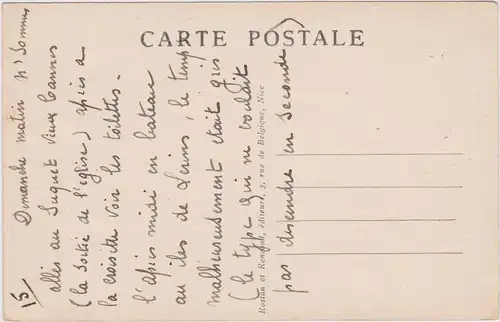 CARTE POSTALE
15 Dimanche matin n/ sommes
allés au Suquet vieux Cannes
(la sortie de l'eglise) après a
la croisette voir les toilettes.
L'après midi en bateau
au iles de Lerins, le temps
malheureusement etait gris
(le type qui ne voulait
pas descendre en seconde
Rostan et Renault, éditeurs, 3, rue de Belgique, Nice